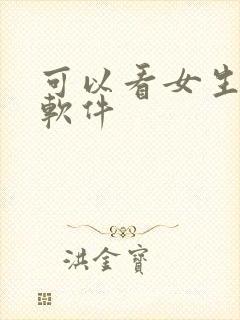 可以看女生
軟件
洪金寶